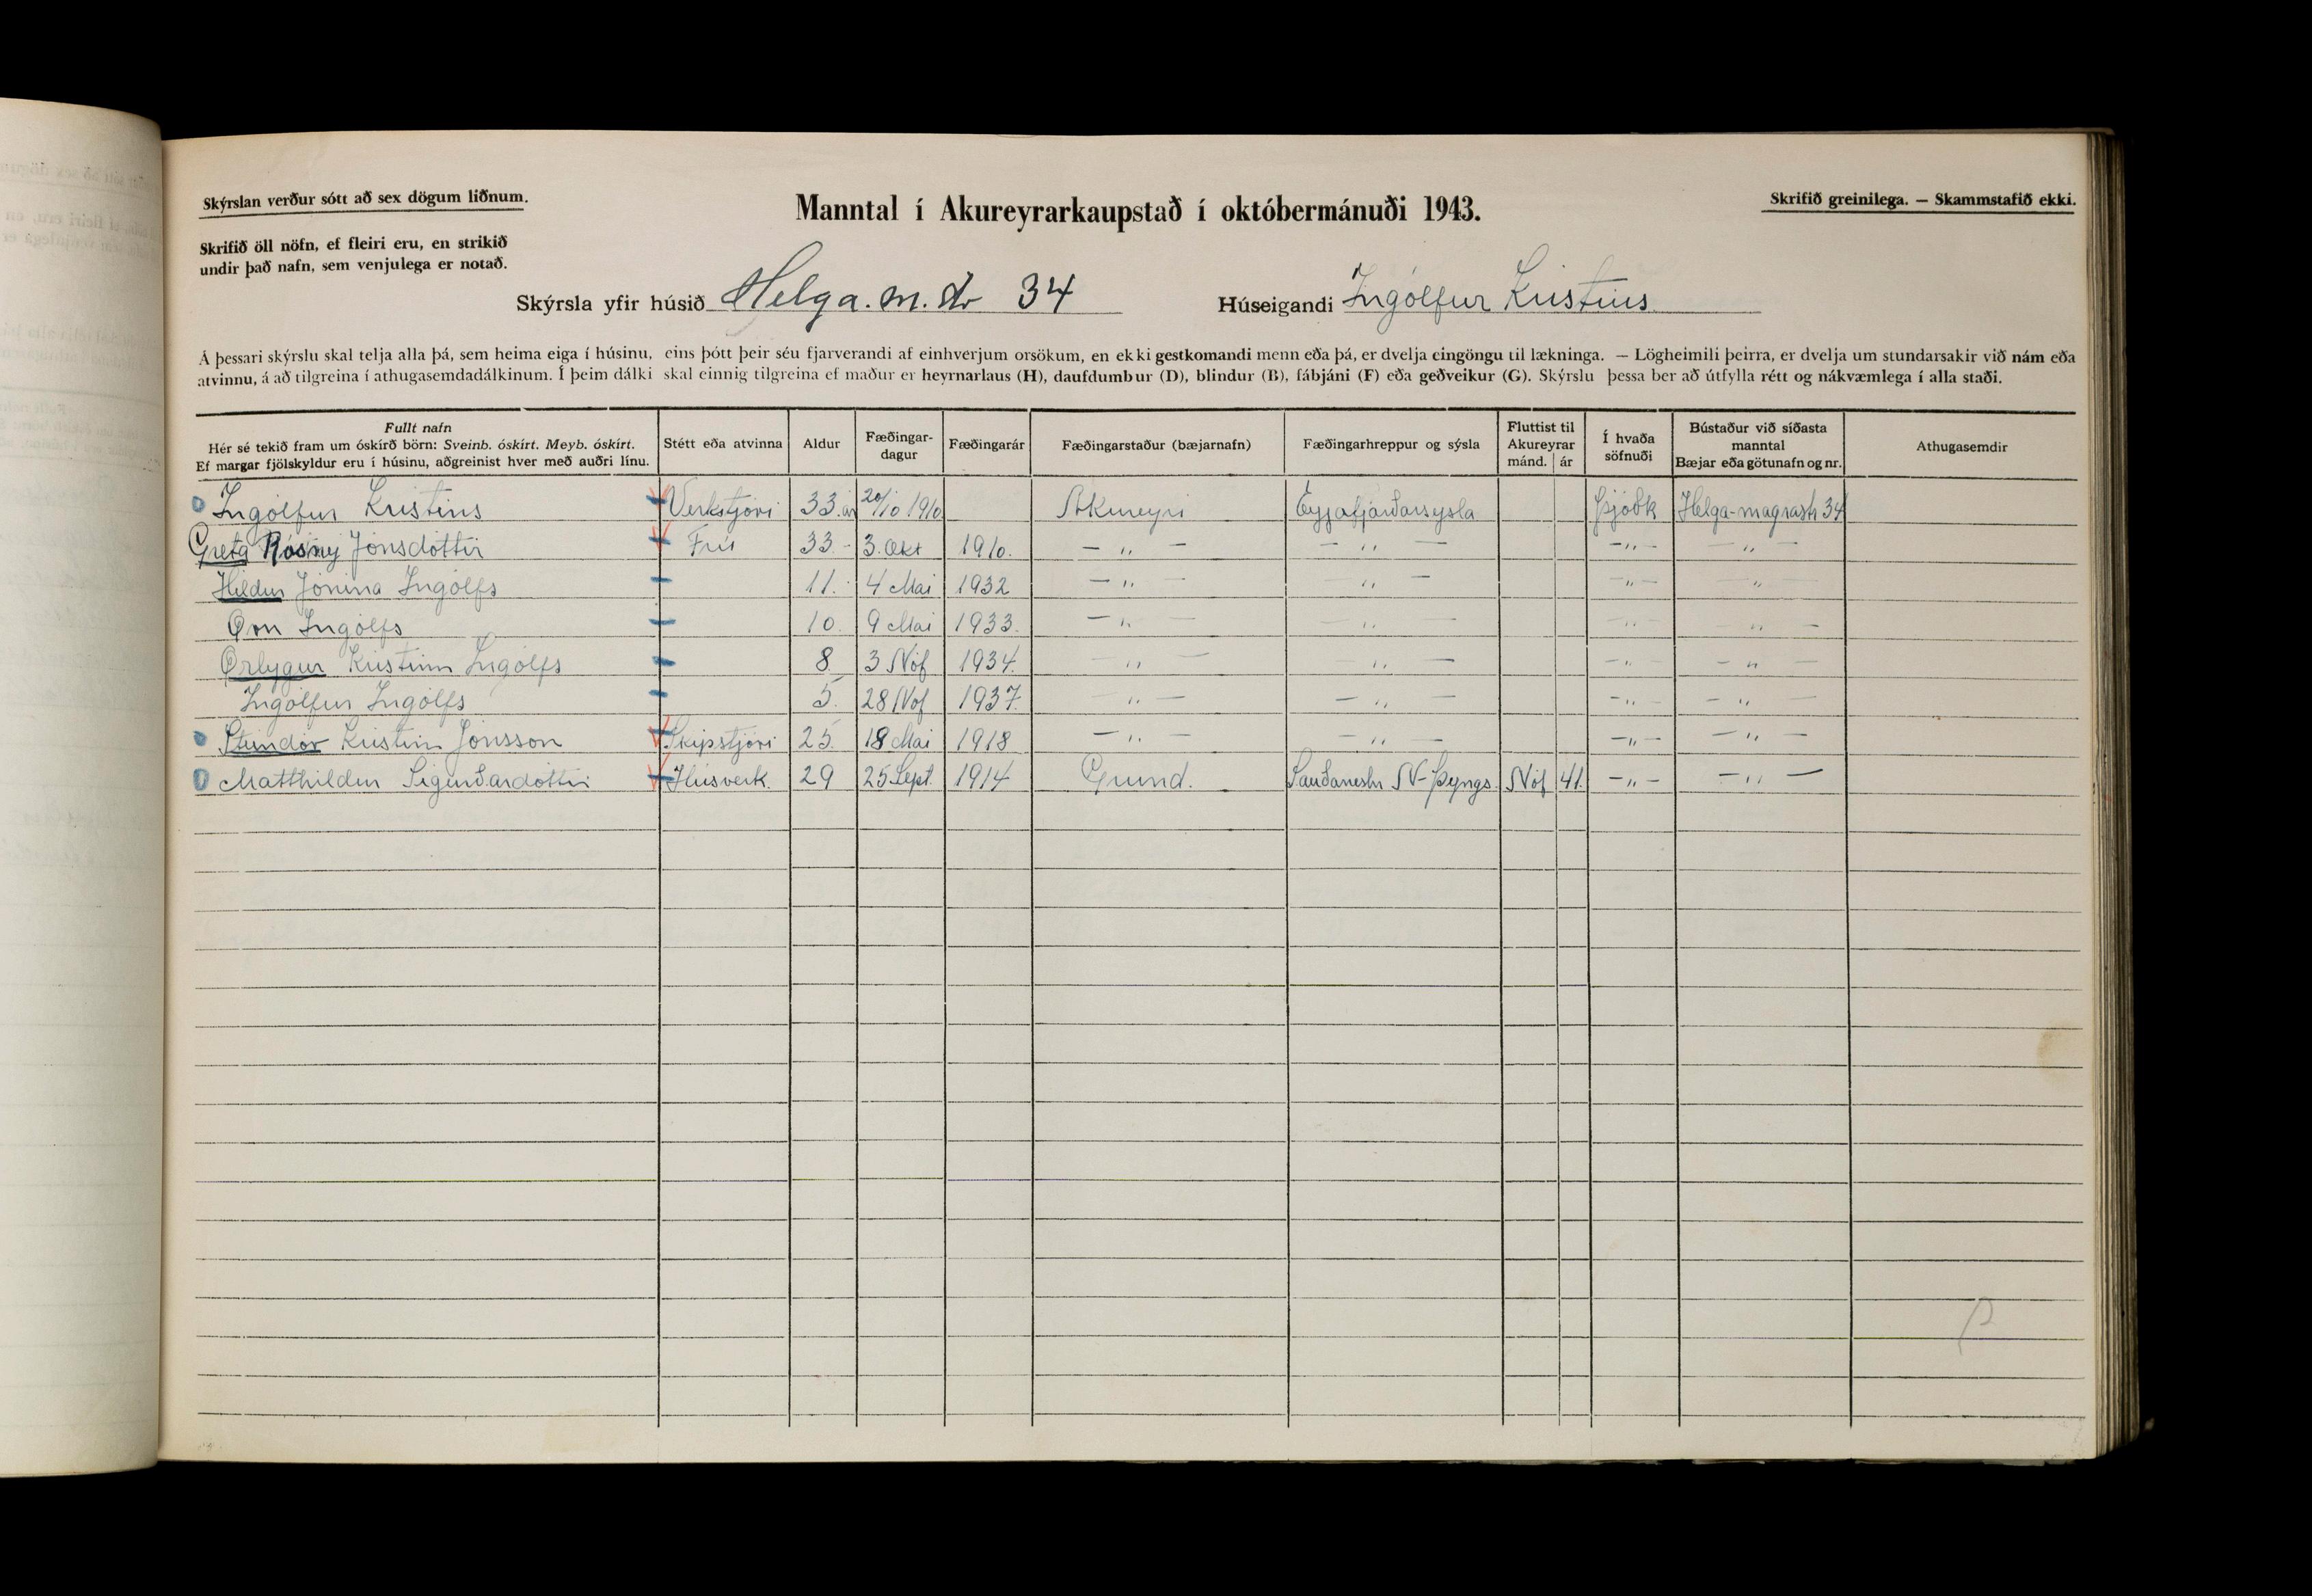 Skýrslan verður sótt að sex dögum liðnum.
Manntal í Akureyrarkaupstað í októbermánuði 1943.
Skrifið greinilega. — Skammstafið ekki.
Skrifið öll nöfn, ef fleiri eru, en strikið
undir það nafn, sem venjulega er notað.
Skýrsla yfir húsið Helga.m.str 34 Húseigandi Ingólfur Kristins
Á þessari skýrslu skal telja alla þá, sem heima eiga í húsinu, eins þótt þeir séu fjarverandi af einhverjum orsökum, en ekki gestkomandi menn eða þá, er dvelja eingöngu til lækninga. — Lögheimili þeirra, er dvelja um stundarsakir við nám eða
atvinnu, á að tilgreina í athugasemdadálkinum. Í þeim dálki skal einnig tilgreina ef maður er heyrnarlaus (H), daufdumbur (D), blindur (B), fábjáni (F) eða geðveikur (G). Skýrslu þessa ber að útfylla rétt og nákvæmlega í alla staði.
Fullt nafn
Hér sé tekið fram um óskírð börn: Sveinb. óskírt. Meyb. óskírt.
Ef margar fjölskyldur eru í húsinu, aðgreinist hver með auðri línu.
Stétt eða atvinna
Aldur
Fæðingar-
dagur
Fæðingarár
Fæðingarstaður (bæjarnafn)
Fæðingarhreppur og sýsla
Fluttist til
Akureyrar
mánd. ár
Í hvaða
söfnuði
Bústaður við síðasta
manntal
Bæjar eða götunafn og nr.
Athugasemdir
Ingólfur Kristins Verkstjóri 33 ár 20/10 1910 Akureyri Eyjafjarðarsýsla Þjóðk Helga-magrastr 34
Greta Rósný Jónsdóttir Frú 33 - 3. Okt 1910. — " — — " — — " — — " —
Hildur Jónína Ingólfs 11. 4 Mai 1932 — " — " — — " — "
Örn Ingólfs 10. 9 Mai 1933. — " — — " — — " — — " —
Örlygur Kristinn Ingólfs 8 3 Nóf 1934. — " — — " — — " — — " —
Ingólfur Ingólfs 5. 28 Nóf 1937. " — — " — " — — " —
Steindór Kristinn Jónsson Skipstjóri 25. 18 Mai 1918 — " — — " — — " — — " —
Matthildur Sigurðardóttir Húsverk. 29 25 Sept. 1914 Grund. Sauðaneshr N-Þyngs. Nóf 41. — " — — " —